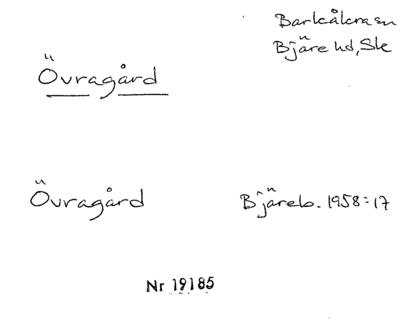 Barkåkra sn
Bjäre hd, Sk
Övragård
Övragård Bjäreb. 1958:17
Nr 19185